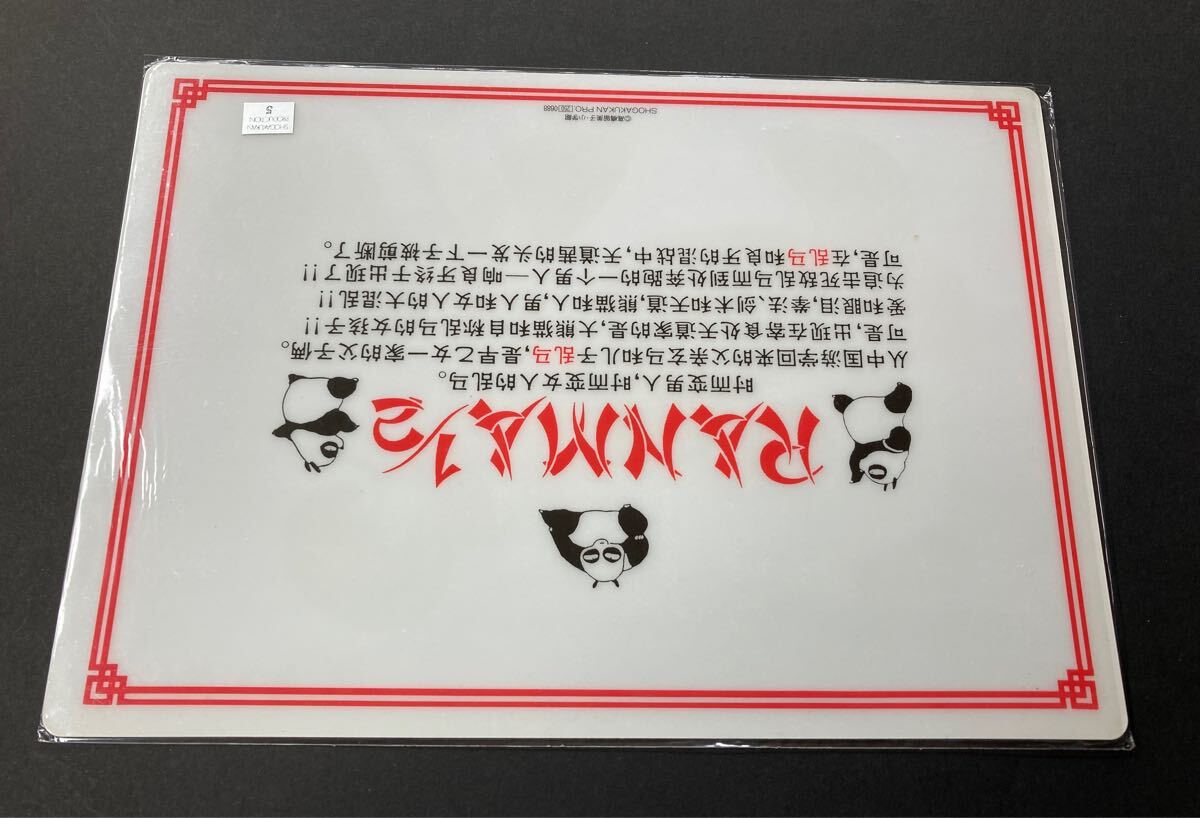 RANMA1/2
时而变男人,时而变女人的乱马。
从中国游学回来的父亲玄马和儿子乱马,是早乙女一家的父子俩。
可是,出现在客食处天道家的是,大熊猫和自称乱马的女孩子!!
爱和眼泪,拳法、剑术和天道,熊猫和人,男人和女人的大混乱!!
为追击死敌乱马而到处奔跑的一个男人—响良牙终于出现了!!
可是,在乱马和良牙的混战中,天道茜的头发一下子被剪断了。
©高橋留美子·小学館
SHOGAKUKAN PRO. 250 0688
SHOGAKUKAN
PRODUCTION
5